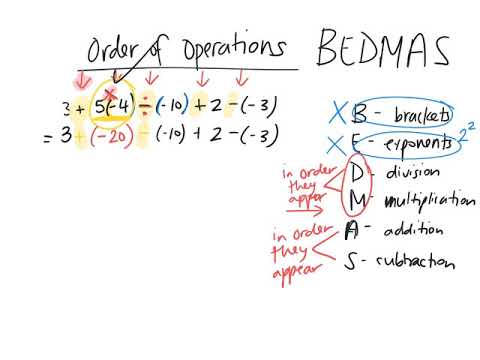 Order of Operations
BEDMAS
3 + 5(-4) ÷ (-10) + 2 - (-3)
×
= 3 + (-20) - (-10) + 2 - (-3)
X B - brackets
X E - exponents - 2²
D - division
M - multiplication
A - addition
S - subtraction
in order
they
appear
in order
they
appear